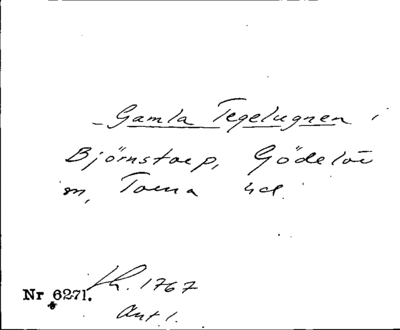 Gamla Tegelugnen i
Björnstorp, Gödelöv
sn, Torna hd.
Lh. 1767
Nr 6271.
Ant 1.